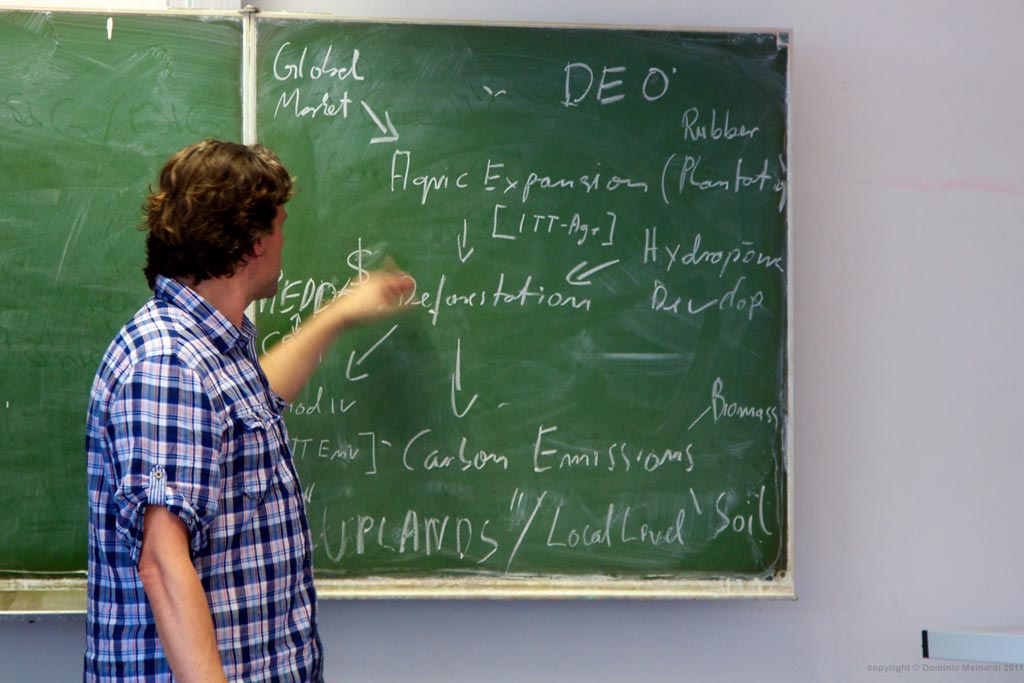 Global
Market
DEO
Rubber
Agric Expansion (Plantat.
[ITT-Agr]
Hydropone
$
REDD Deforestation
Develop
odiv
Biomass
TT Env] - Carbon Emissions
"UPLANDS"/Local Level' Soil
copyright © Dominic Meinardi 2011